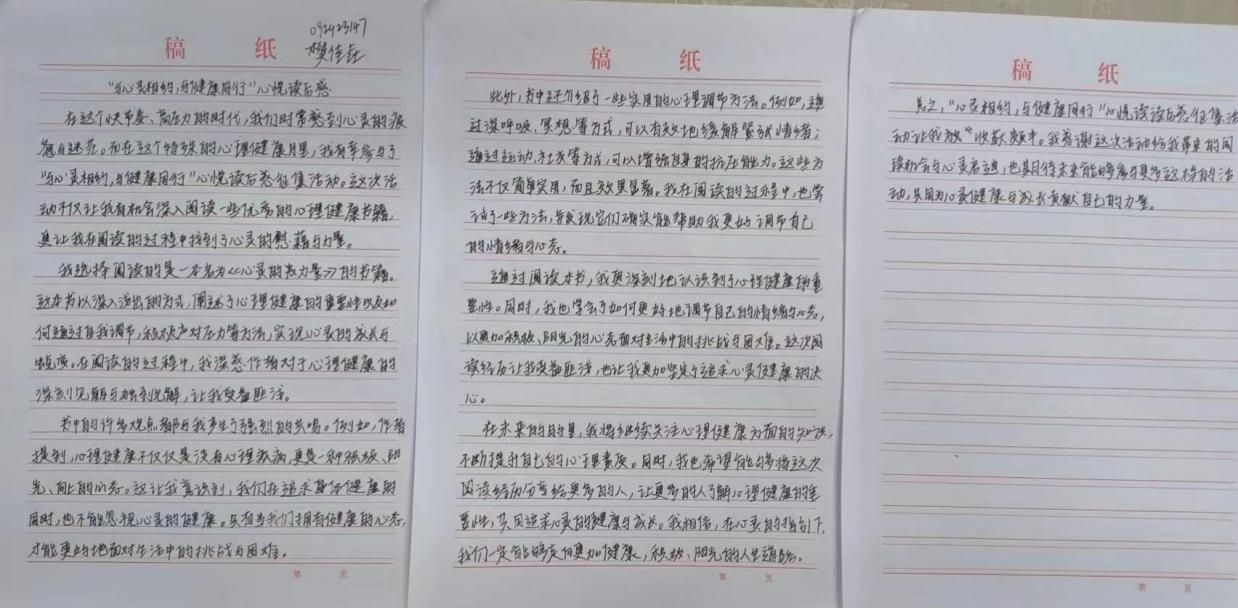 稿 纸
092423147
樊佳
"与心灵相约,与健康同行"心悦读后感
在这个快节奏、高压力的时代,我们时常感到心灵的疲
惫与迷茫。而在这个特殊的心理健康月里,我有幸参与了
"与心灵相约,与健康同行"心悦读后感征集活动。这次活
动不仅让我有机会深入阅读一些优秀的心理健康书籍,
更让我在阅读的过程中找到了心灵的慰藉与力量。
我选择阅读的是一本名为《心灵的力量》的书籍。
这本书以深入浅出的方式,阐述了心理健康的重要性以及如
何通过自我调节,积极应对压力等方法,实现心灵的成长与
蜕变。在阅读的过程中,我深感作者对于心理健康的
深刻见解与独到见解,让我受益匪浅。
书中的许多观点都与我产生了强烈的共鸣。例如,作者
提到,心理健康不仅仅是没有心理疾病,更是一种积极、阳
光、向上的心态。这让我意识到,我们在追求身体健康的
同时,也不能忽视心灵的健康。只有当我们拥有健康的心态,
才能更好地面对生活中的挑战与困难。
第 页
稿 纸
此外,书中还介绍了一些实用的心理调节方法。例如,通
过深呼吸、冥想等方式,可以有效地缓解紧张情绪;
通过运动,社交等方式,可以增强自身的抗压能力。这些方
法不仅简单实用,而且效果显著。我在阅读的过程中,也尝
试了一些方法,并发现它们确实能帮助我更好调节自己
的情绪与心态。
通过阅读本书,我更深刻地认识到了心理健康的重
要性。同时,我也学会了如何更好地调节自己的情绪与心态,
以更加积极、阳光的心态面对生活中的挑战与困难。这次阅
读经历让我受益匪浅,也让我更加坚定了追求心灵健康的决
心。
在未来的里,我将继续关注心理健康方面的知识,
不断提升自己的心理素质。同时,我也希望能够将这次
阅读经历分享给更多的人,让更多的人了解心理健康的重
要性,共同追求心灵的健康与成长。我相信,在心灵的指引下,
我们一定能够走向更加健康、积极、阳光的人生道路。
第 页
稿 纸
总之,"心灵相约,与健康同行"心悦读读后感征集活
动让我收获颇丰。我感谢这次活动给我带来的阅
读机会与心灵启迪,也期待未来能够参与更多这样的活
动,共同为心灵健康与成长贡献自己的力量。
第 页